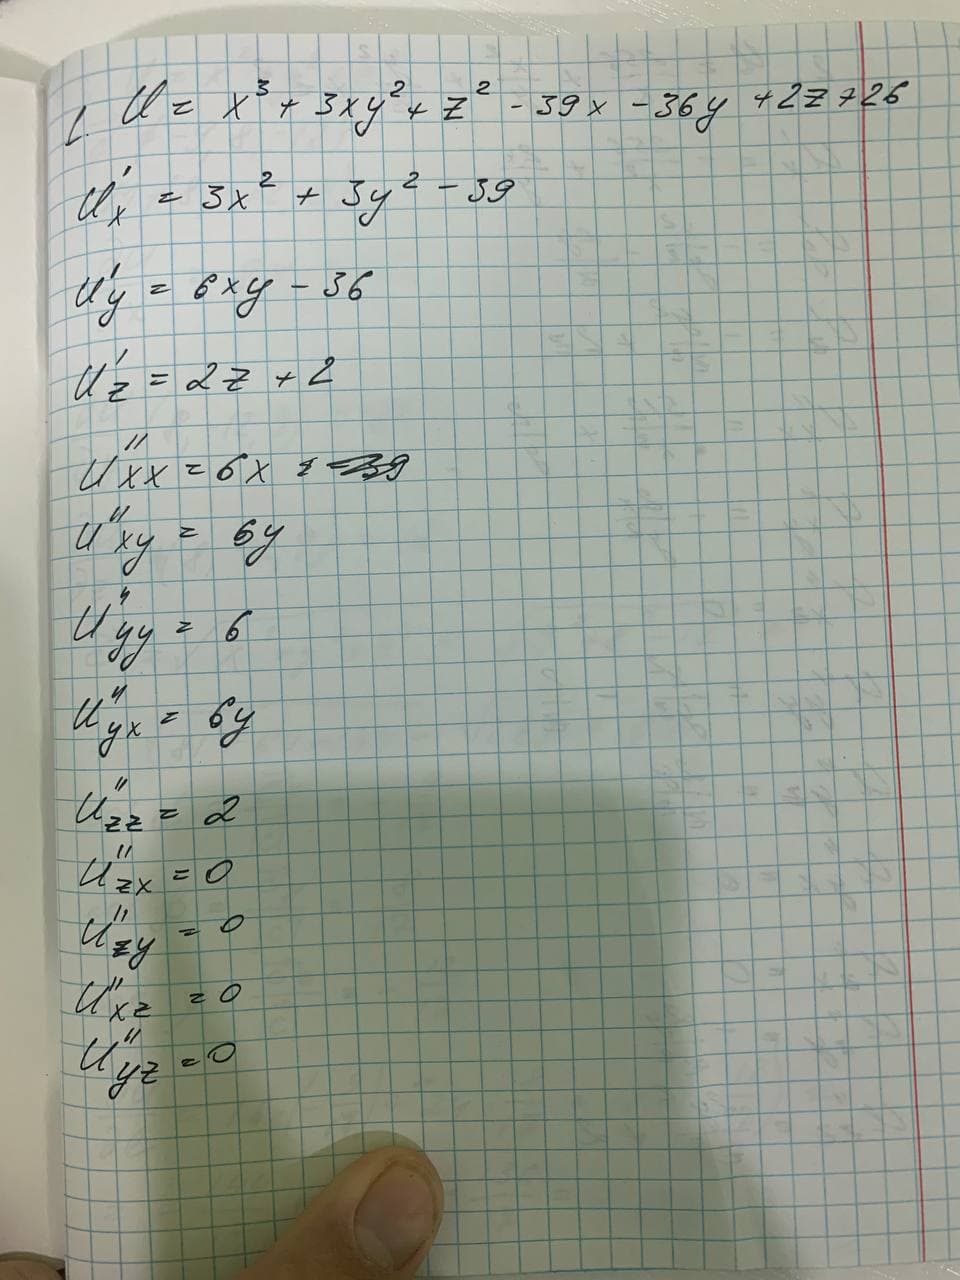 1. U = x³ + 3xy² + z² - 39x - 36y + 2z + 26
U'x = 3x² + 3y² - 39
U'y = 6xy - 36
U'z = 2z + 2
U''xx = 6x
U''xy = 6y
U''yy = 6
U''yx = 6y
U''zz = 2
U''zx = 0
U''zy = 0
U''xz = 0
U''yz = 0